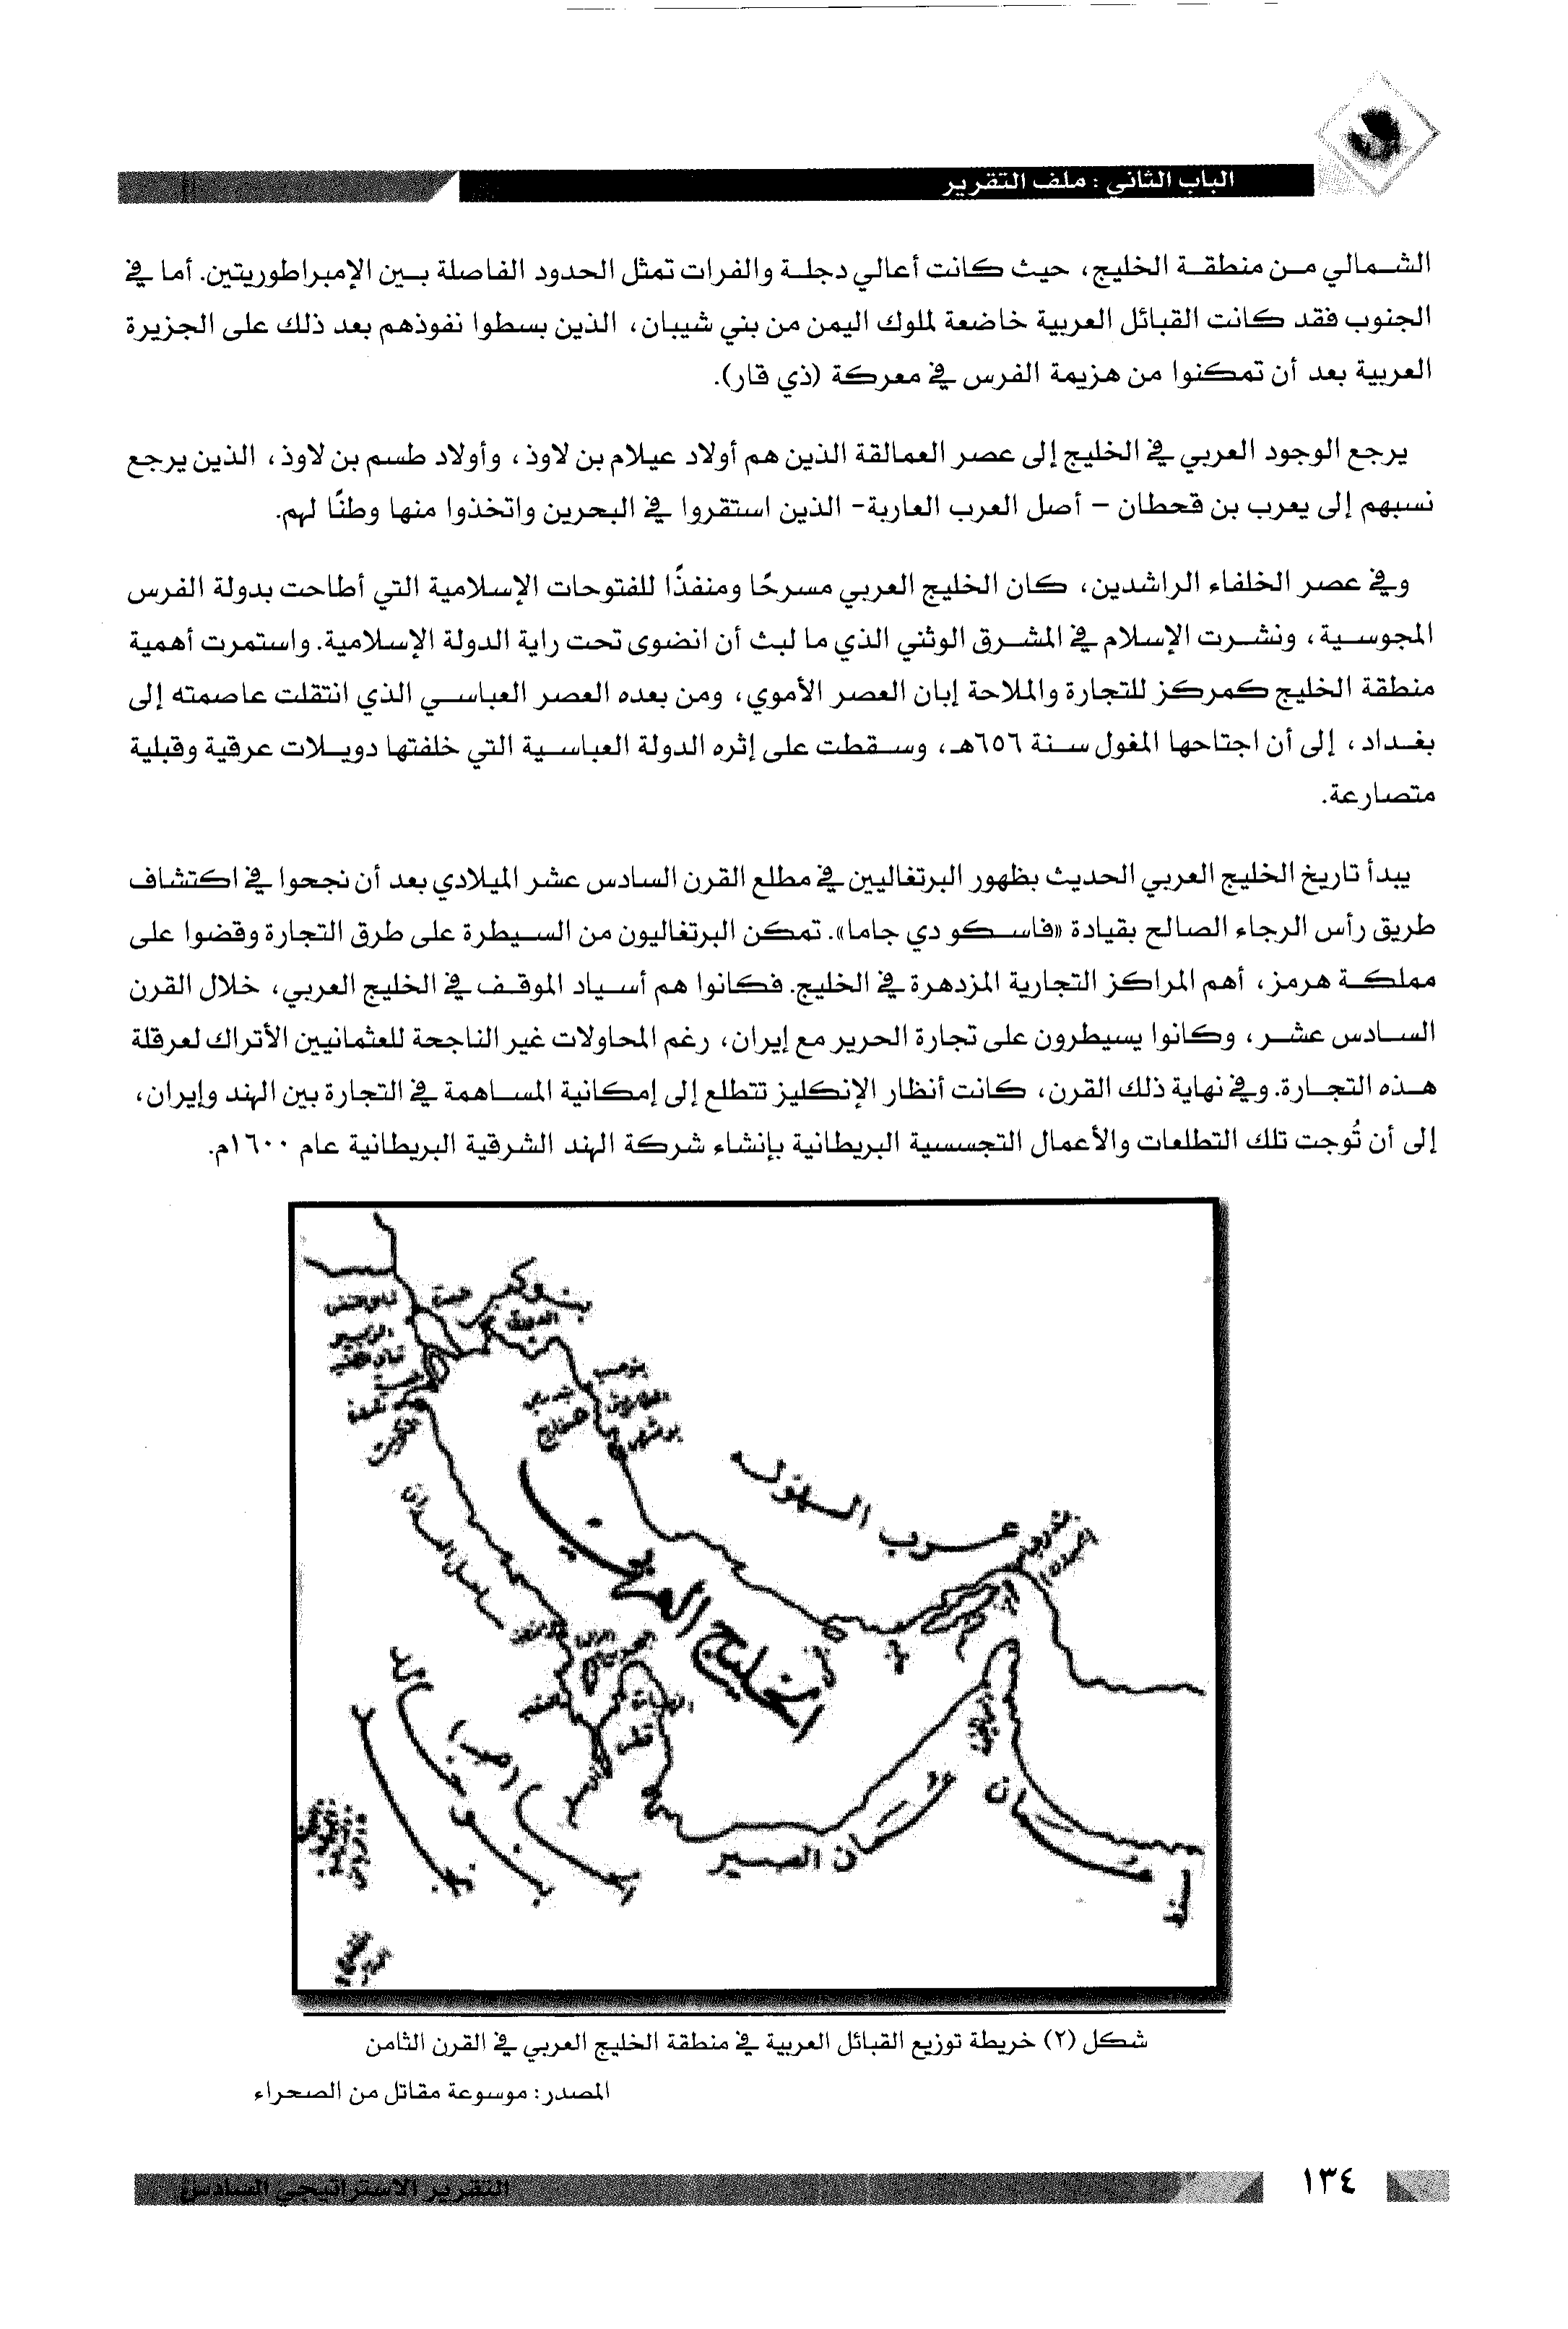 الباب الثاني : ملف التقرير
الشمالي من منطقة الخليج، حيث كانت أعالي دجلة والفرات تمثل الحدود الفاصلة بين الإمبراطوريتين. أما في
الجنوب فقد كانت القبائل العربية خاضعة لملوك اليمن من بني شيبان، الذين بسطوا نفوذهم بعد ذلك على الجزيرة
العربية بعد أن تمكنوا من هزيمة الفرس في معركة (ذي قار).
يرجع الوجود العربي في الخليج إلى عصر العمالقة الذين هم أولاد عيلام بن لاوذ، وأولاد طسم بن لاوذ، الذين يرجع
نسبهم إلى يعرب بن قحطان – أصل العرب العاربة- الذين استقروا في البحرين واتخذوا منها وطنًا لهم.
وفي عصر الخلفاء الراشدين، كان الخليج العربي مسرحًا ومنفذًا للفتوحات الإسلامية التي أطاحت بدولة الفرس
المجوسية، ونشرت الإسلام في المشرق الوثني الذي ما لبث أن انضوى تحت راية الدولة الإسلامية. واستمرت أهمية
منطقة الخليج كمركز للتجارة والملاحة إبان العصر الأموي، ومن بعده العصر العباسي الذي انتقلت عاصمته إلى
بغداد، إلى أن اجتاحها المغول سنة ٦٥٦هـ، وسقطت على إثره الدولة العباسية التي خلفتها دويلات عرقية وقبلية
متصارعة.
يبدأ تاريخ الخليج العربي الحديث بظهور البرتغاليين في مطلع القرن السادس عشر الميلادي بعد أن نجحوا في اكتشاف
طريق رأس الرجاء الصالح بقيادة «فاسكو دي جاما». تمكن البرتغاليون من السيطرة على طرق التجارة وقضوا على
مملكة هرمز، أهم المراكز التجارية المزدهرة في الخليج. فكانوا هم أسياد الموقف في الخليج العربي، خلال القرن
السادس عشر، وكانوا يسيطرون على تجارة الحرير مع إيران، رغم المحاولات غير الناجحة للعثمانيين الأتراك لعرقلة
هذه التجارة. وفي نهاية ذلك القرن، كانت أنظار الإنكليز تتطلع إلى إمكانية المساهمة في التجارة بين الهند وإيران،
إلى أن تُوجت تلك التطلعات والأعمال التجسسية البريطانية بإنشاء شركة الهند الشرقية البريطانية عام ١٦٠٠م.
عرب الهولة
الخليج العربي
بنو خالد
عمان الصير
عمان
قطر
شكل (٢) خريطة توزيع القبائل العربية في منطقة الخليج العربي في القرن الثامن
المصدر: موسوعة مقاتل من الصحراء
١٣٤
التقرير الاستراتيجي السادس